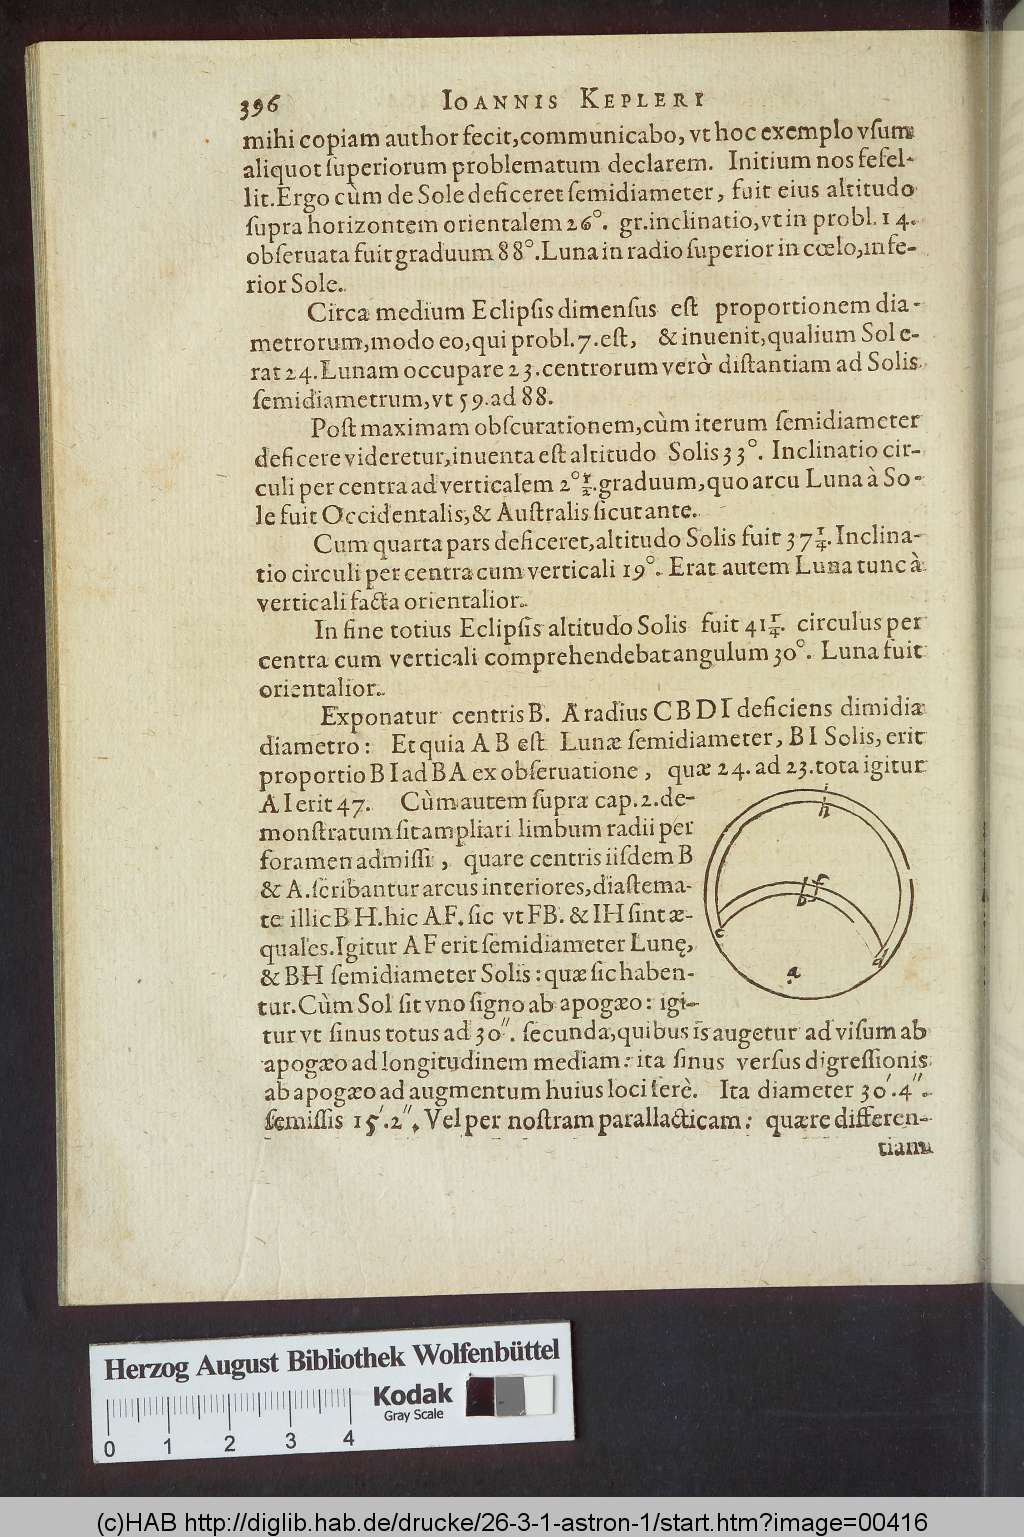 396 IOANNIS KEPLERI
mihi copiam author fecit, communicabo, vt hoc exemplo vſum
aliquot ſuperiorum problematum declarem. Initium nos fefel-
lit. Ergo cùm de Sole deficeret ſemidiameter, fuit eius altitudo
ſupra horizontem orientalem 26°. gr. inclinatio, vt in probl. 14.
obſeruata fuit graduum 88°. Luna in radio ſuperior in cœlo, infe-
rior Sole.
Circa medium Eclipſis dimenſus eſt proportionem dia-
metrorum, modo eo, qui probl. 7. eſt, & inuenit, qualium Sol e-
rat 24. Lunam occupare 23. centrorum verò diſtantiam ad Solis
ſemidiametrum, vt 59. ad 88.
Poſt maximam obſcurationem, cùm iterum ſemidiameter
deficere videretur, inuenta eſt altitudo Solis 33°. Inclinatio cir-
culi per centra ad verticalem 2°½. graduum, quo arcu Luna à So-
le fuit Occidentalis, & Auſtralis ſicut ante.
Cum quarta pars deficeret, altitudo Solis fuit 37¼. Inclina-
tio circuli per centra cum verticali 19°. Erat autem Luna tunc à
verticali facta orientalior.
In fine totius Eclipſis altitudo Solis fuit 41¼. circulus per
centra cum verticali comprehendebat angulum 30°. Luna fuit
orientalior.
Exponatur centris B. A radius C B D I deficiens dimidia
diametro: Et quia A B eſt Lunæ ſemidiameter, B I Solis, erit
proportio B I ad B A ex obſeruatione, quæ 24. ad 23. tota igitur
A I erit 47. Cùm autem ſupra cap. 2. de-
monſtratum ſit ampliari limbum radii per
foramen admiſſi, quare centris iiſdem B
& A. ſcribantur arcus interiores, diaſtema-
te illic B H. hic A F. ſic vt F B. & I H ſint æ-
quales. Igitur A F erit ſemidiameter Lunę,
& B H ſemidiameter Solis: quæ ſic haben-
tur. Cùm Sol ſit vno ſigno ab apogæo: igi-
i
h
f
b
c
d
a
tur vt ſinus totus ad 30''. ſecunda, quibus is augetur ad viſum ab
apogæo ad longitudinem mediam: ita ſinus verſus digreſſionis
ab apogæo ad augmentum huius loci ferè. Ita diameter 30'. 4''.
ſemiſſis 15'. 2''. Vel per noſtram parallacticam: quære differen-
tiam
Herzog August Bibliothek Wolfenbüttel
Kodak
Gray Scale
0 1 2 3 4
(c)HAB http://diglib.hab.de/drucke/26-3-1-astron-1/start.htm?image=00416